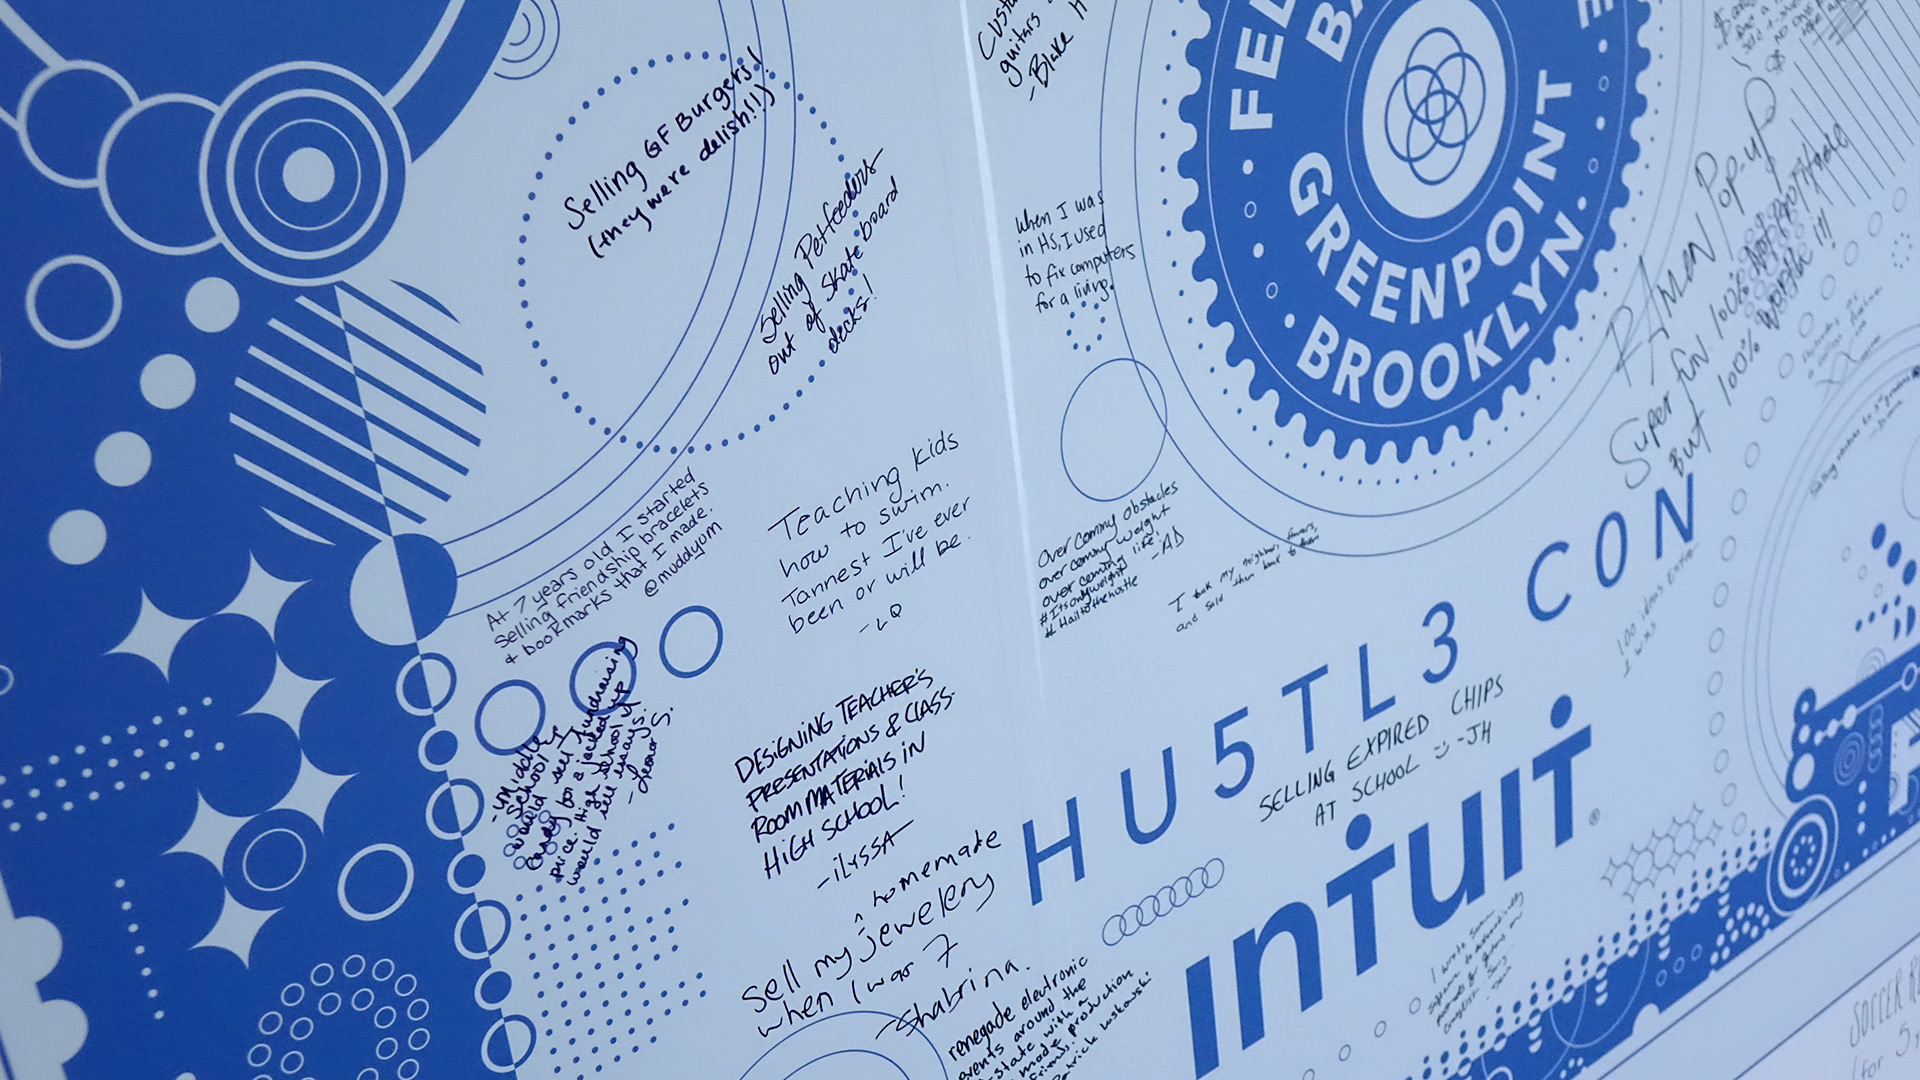 Selling GF Burgers!
(they were delish!!!)
Selling Petfeeders
out of skate board
decks!
At 7 years old I started
selling friendship bracelets
& bookmarks that I made.
@muddyum
Teaching kids
how to swim.
Tannest I've ever
been or will be.
-LQ
-middle
School
would sell fundraising
candy for a jacked up
price. High school
would sell essays.
DESIGNING TEACHER'S
PRESENTATIONS & CLASS
ROOM MATERIALS IN
HIGH SCHOOL!
-ILYSSA
homemade
^
Sell my jewelery
when I was 7
-Shabrina.
renegade electronic
events around the
-state with a
production
friends.
guitars
-Blake H
When I was
in HS, I used
to fix computers
for a living.
FEL
BA
GREENPOINT
BROOKLYN.
Over Coming obstacles
over coming weight
over coming life!
-AD
#Itsonlyweight
#Hailtothehustle
I took my neighbors flowers,
and sold them back to them
RAMEN POP-UP
Super fun 100% Not profitable
But 100% Worth it!!
HU5TL3 CON
SELLING EXPIRED CHIPS
AT SCHOOL :) -JH
intuit®
100 ideas
SOCCER
for